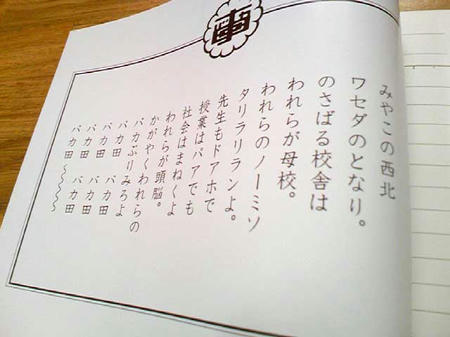 みやこの西北
ワセダのとなり。
のさばる校舎は
われらが母校。
われらのノーミソ
タリラリランよ。
先生もドアホで
授業はパアでも
社会はまねくよ
われらが頭脳。
かがやくわれらの
バカぶりみちよ
バカ田 バカ田
バカ田 バカ田
バカ田 バカ田